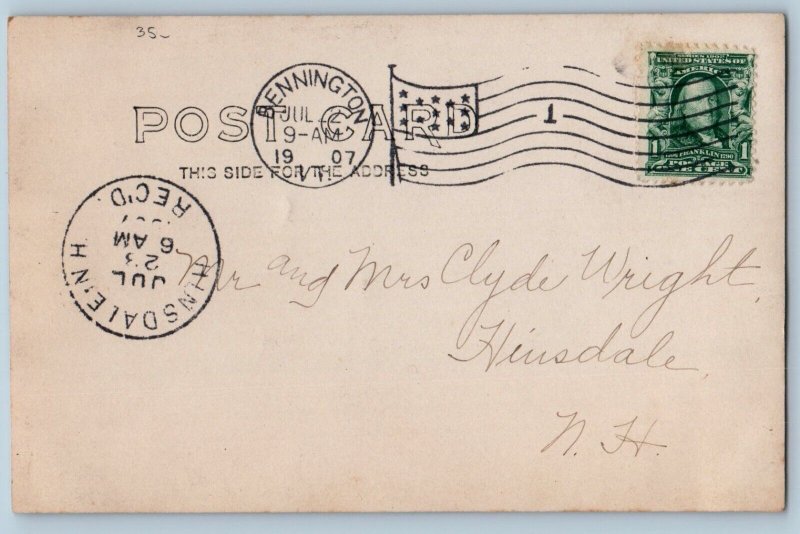 35-
POST CARD
THIS SIDE FOR THE ADDRESS
BENNINGTON
JUL
9-AM
19 07
VT.
1
SERIES 1902
UNITED STATES OF
AMERICA
FRANKLIN
1 1
POSTAGE
HINSDALE N.H.
JUL
23
6 AM
REC'D.
Mr and Mrs Clyde Wright,
Hinsdale,
N. H.